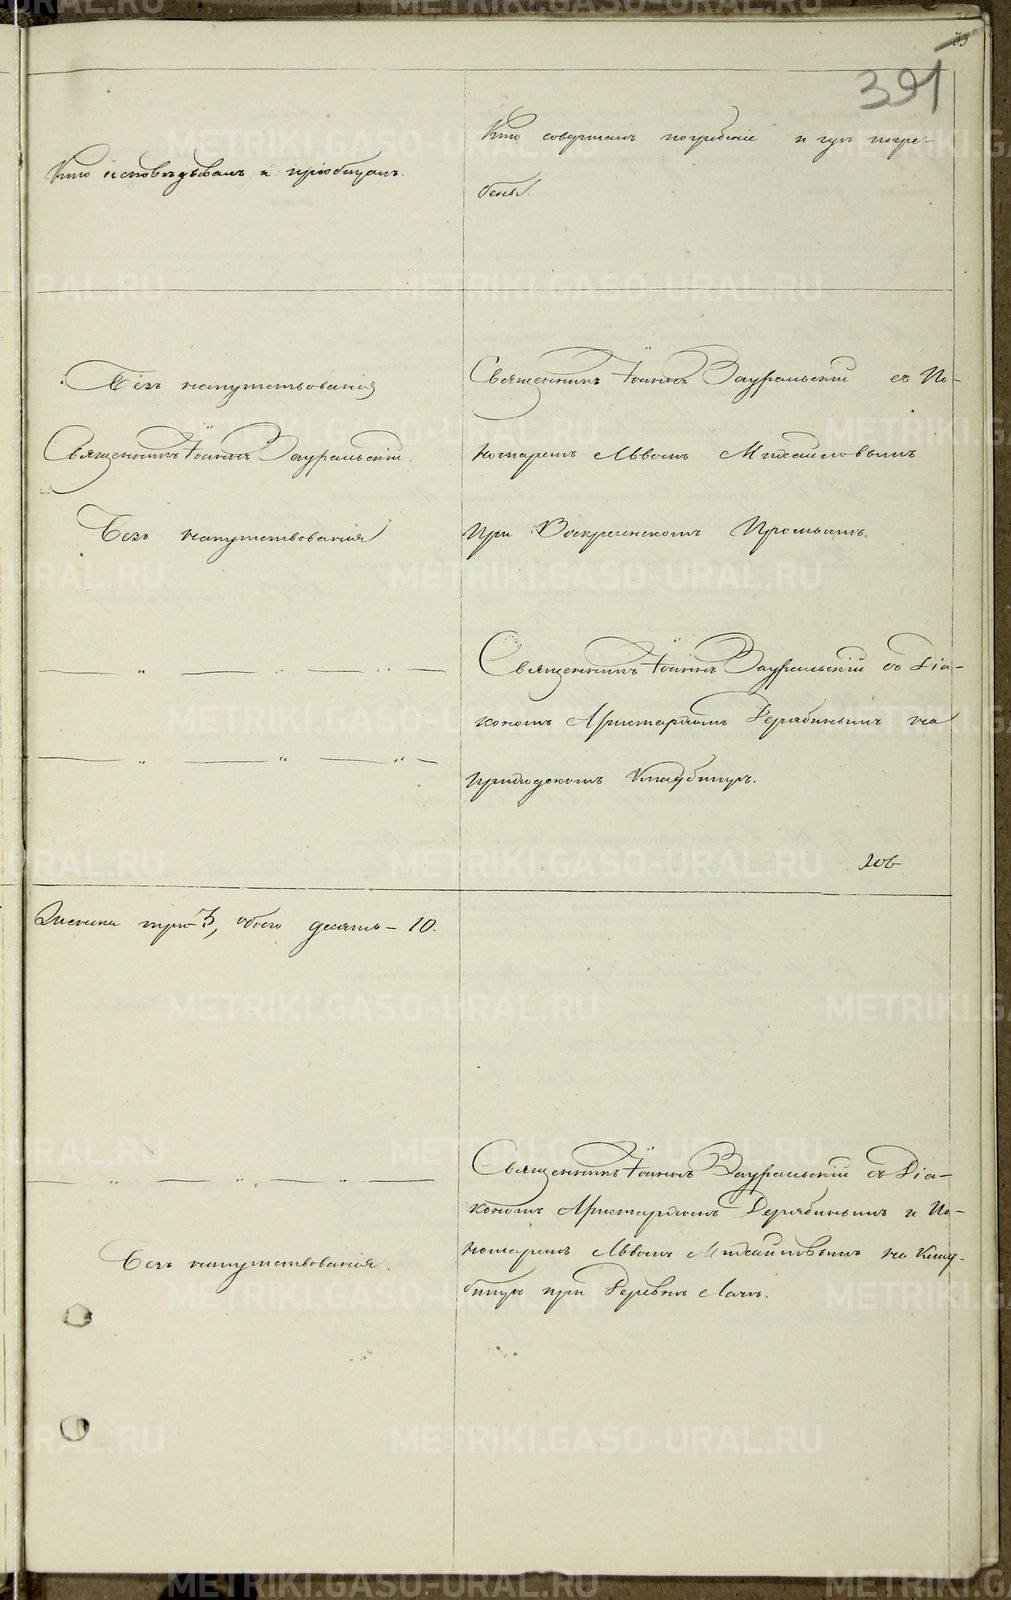 391
Кто исповѣдывалъ и пріобщалъ.
Кто совершалъ погребеніе и гдѣ погре-
бены.
Безъ напутствованія
Священникъ Іоаннъ Зауральскій.
Безъ напутствованія
Священникъ Іоаннъ Зауральскій съ По-
номаремъ Львомъ Михайловымъ
при Воскресенскомъ Промыслѣ.
Священникъ Іоаннъ Зауральскій съ Діа-
кономъ Аристархомъ Дерябинымъ на
приходскомъ кладбищѣ.
Женска три 3, обоего десять – 10.
Безъ напутствованія.
Священникъ Іоаннъ Зауральскій съ Діа-
кономъ Аристархомъ Дерябинымъ и По-
номаремъ Львомъ Михайловымъ на клад-
бищѣ при Деревнѣ
METRIKI.GASO-URAL.RU